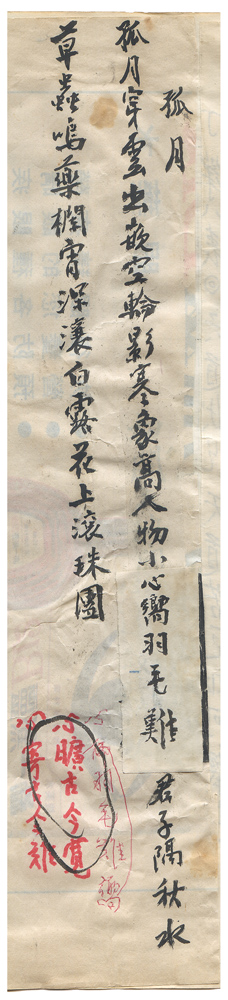 孤月
孤月穿雲出嵌空輪影寒象高人物小心㩦羽毛難君子隔秋水
草蟲鳴藥欄宵深瀼白露花上滾珠團
小傷羽毛難
心曠古今寬